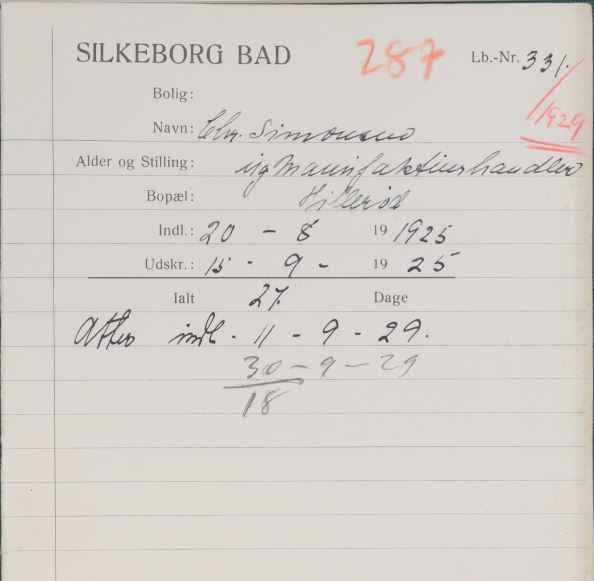 SILKEBORG BAD 287 Lb.-Nr. 331.
/1929
Bolig:
Navn: Chr. Simonsen
Alder og Stilling: Manufakturhandler
Bopæl: Hillerød
Indl.: 20 - 8 19 1925
Udskr.: 15 - 9 - 19 25
Ialt 27. Dage
Atter indl. 11 - 9 - 29.
30 - 9 - 29
18